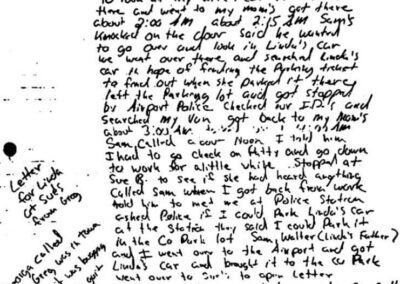 there and went to my mom's got there
about 2:00 AM about 2:15 AM Sam's
knocked on the door said he wanted
to go over and look in Linda's car
we went over there and searched Linda's
car in hope of finding the Parking ticket
to find out when she parked it there
left the Parking lot and got stopped
by Airport Police checked our I.D.'s and
searched my van got back to my mom's
about 3:00 AM
Sam called a cour Noon I told him
I had to go check on Patty and go down
to work for alittle while. Stopped at
Sue B. to see if she had heard anything
called Sam when I got back from work
told him to met me at Police Station
asked Police if I could Park Linda's car
at the Station they said I could Park it
in the Co Park lot Sam, Walter (Linda's Father)
and I went over to the Airport and got
Linda's car and brought it to the Co Park
went over to to open letter
Letter
for Linda
at Sue's
from Greg
called
Greg was in town
was bugging